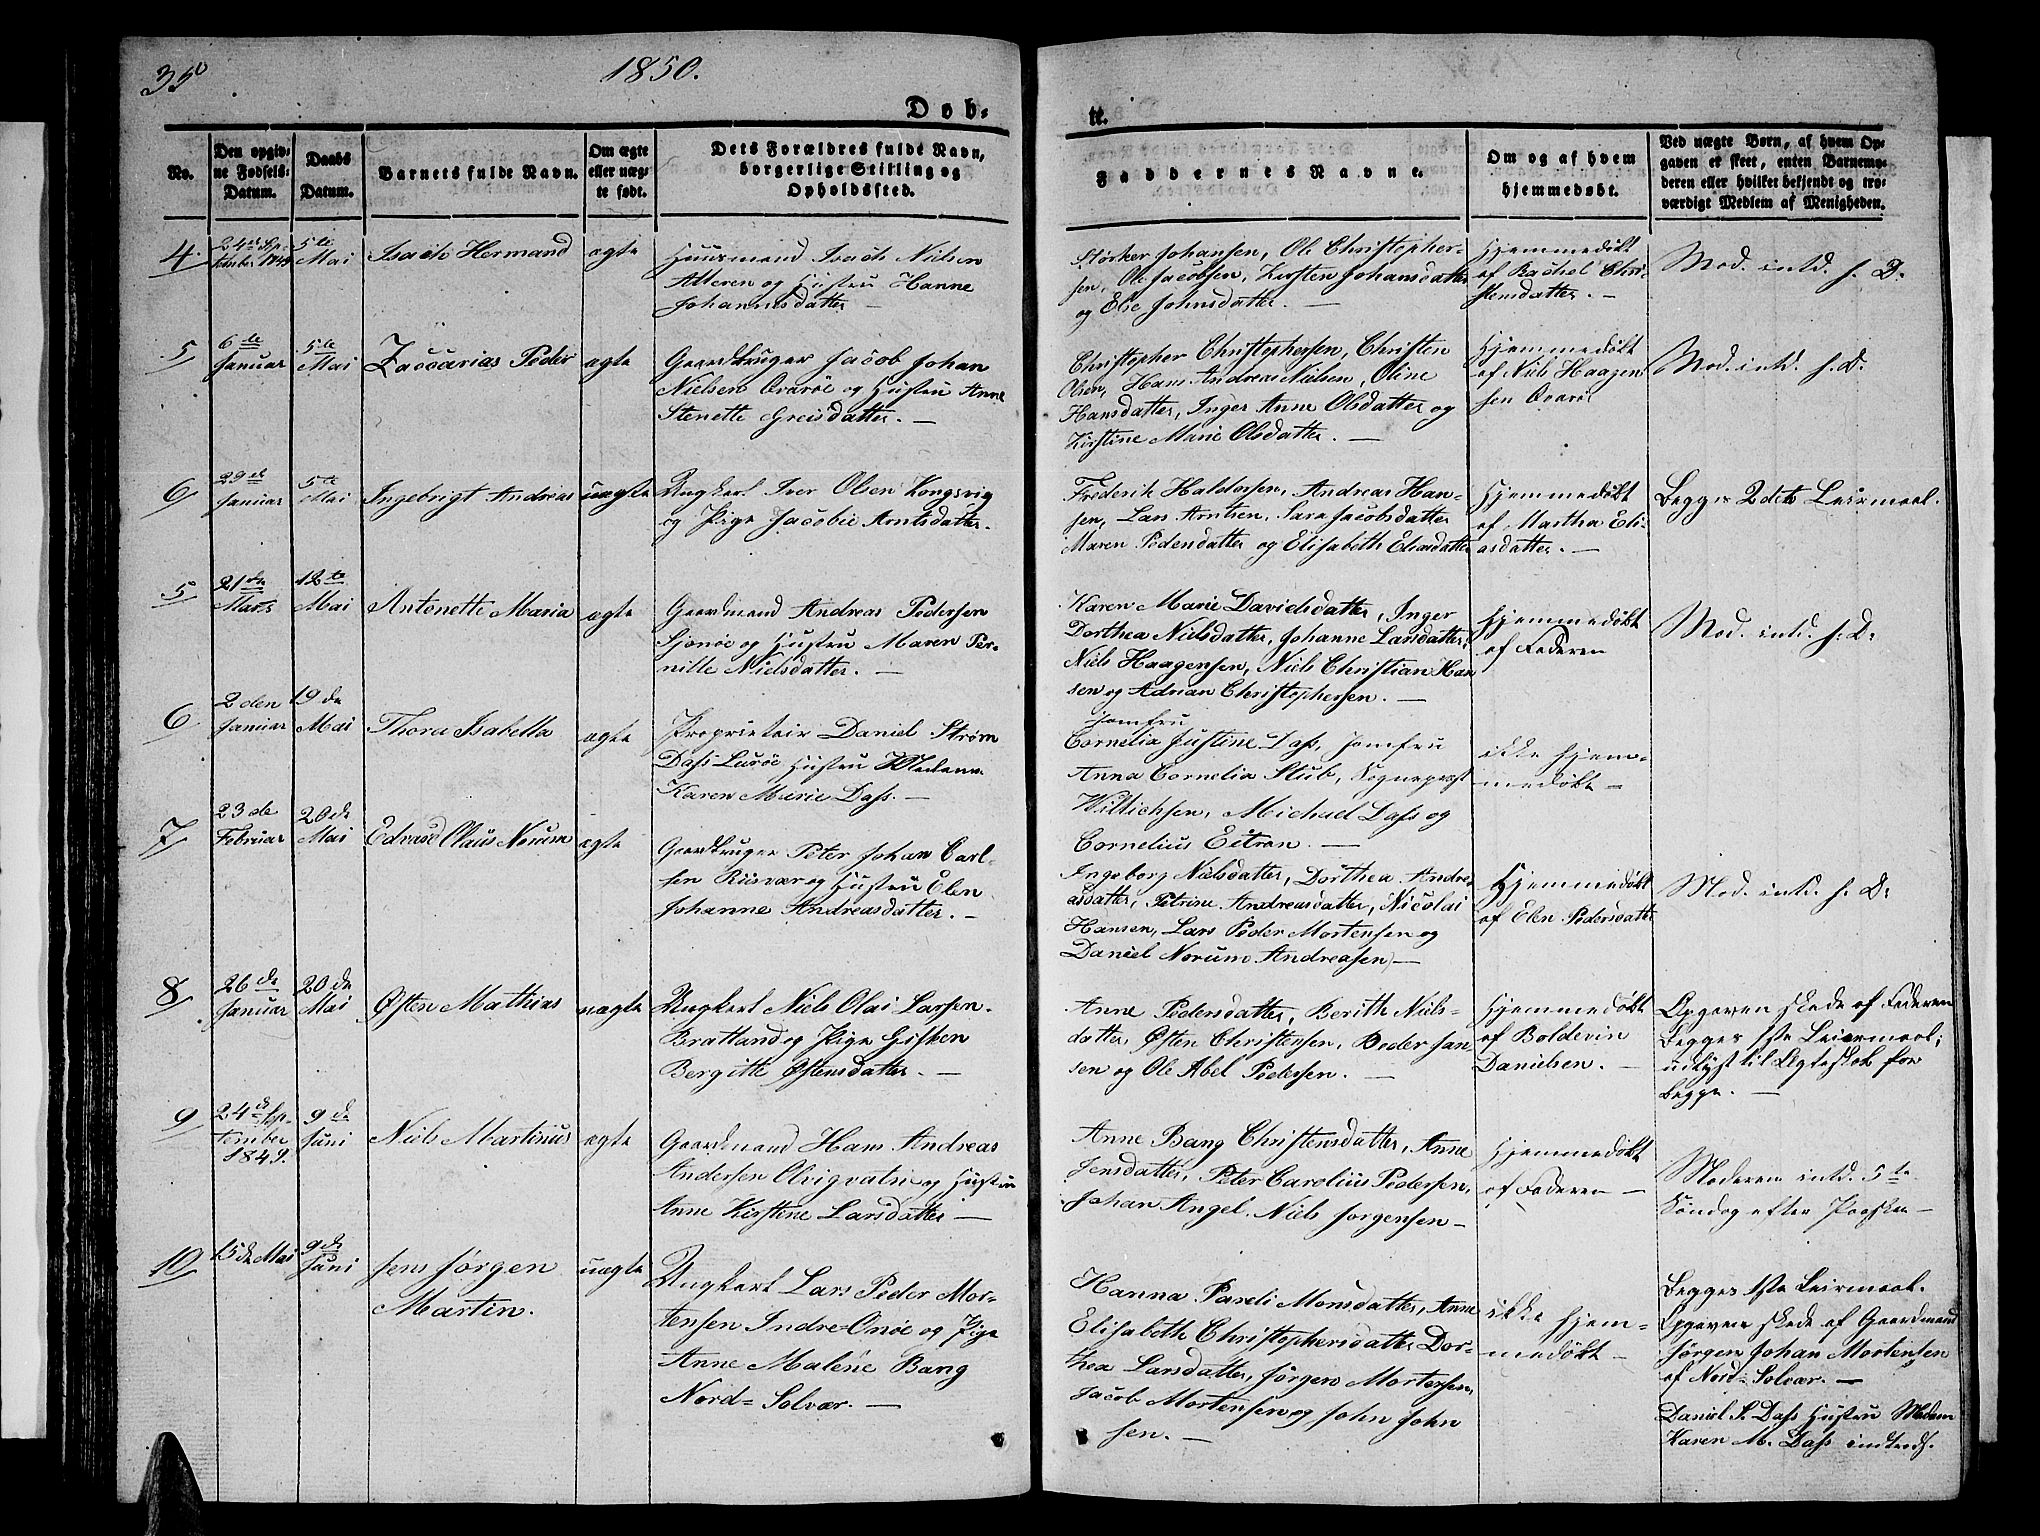 35
1850.
Døb-
te.
No.
Den opgiv-
ne Fødsels-
Datum.
Daabs
Datum.
Barnets fulde Navn.
Om ægte
eller uæg-
te født.
Dets Forældres fulde Navn,
borgerlige Stilling og
Opholdssted.
Faddernes Navne.
Om og af hvem
hjemmedøbt.
Ved uægte Børn, af hvem Op-
gaven er skeet, enten Barnemo-
deren eller hvilket bekjendt og tro-
værdigt Medlem af Menigheden.
4
24de Sep-
tember 1849
5te
Mai
Isach Hermand
ægte
Huusmand Isach Nielsen
Alteren og Hustru Hanne
Johannesdatter
Størker Johansen, Ole Christopher-
sen, Ole Jacobsen, Kirsten Johansdatter
og Else Johnsdatter. —
Hjemmedøbt
af Rachel Chri-
stensdatter. —
Mod. intd. s. D.
5
6te
Januar
5te
Mai
Zaccarias Peder
ægte
Gaardbruger Jacob Johan
Nielsen Qvarøe og Hustru Anne
Stenette Greisdatter. —
Christopher Christophersen, Christen
Olsen, Hans Andreas Nielsen, Oline
Hansdatter, Inger Anne Olsdatter og
Kirstine Marie Olsdatter. —
Hjemmedøbt
af Niels Haagen
sen Qvarøe
Mod. intd. s. D.
6
29de
Januar
5te
Mai
Ingebrigt Andreas
uægte
Ungkarl Iver Olsen Kongsvig
og Pige Jacobie Arntsdatter.
Frederik Haldorsen, Andreas Han-
sen, Lars Arntsen, Sara Jacobsdatter
Maren Pedersdatter og Elisabeth Eliasdatter
Hjemmedøbt
af Martha Eli-
asdatter. —
Begges 2det Leirmaal.
5
21de
Marts
12te
Mai
Antonette Maria
ægte
Gaardmand Andreas Pedersen
Sjonøe og Hustru Maren Per-
nille Nielsdatter. —
Karen Marie Davidsdatter, Inger
Dorthea Nielsdatter, Johanne Larsdatter,
Niels Haagensen, Niels Christian Han
sen og Adrian Christophersen. —
Hjemmedøbt
af Faderen
Mod. intd. s. D.
6
2den
Januar
19de
Mai
Thora Isabella
ægte
Proprietair Daniel Strøm
Dass Lurøe Hustru Madame
Karen Marie Dass. —
Jomfru
Cornelia Justine Dass, Jomfru
Anna Cornelia Stub, Sogneprest
Wittichsen, Michael Dass og
Cornelius Eitran. —
ikke hjem-
medøbt —
7
23de
Februar
20de
Mai
Edvard Olaus Norum
ægte
Gaardbruger Peter Johan Carl-
sen Riisvær og Hustru Elen
Johanne Andreasdatter. —
Ingeborg Nielsdatter, Dorthea Andre-
asdatter, Petrine Andreasdatter, Nicolai
Hansen, Lars Peder Mortensen og
Daniel Norum Andreasen. —
Hjemmedøbt
af Elen Pedersdatt
Mod. intd. s. D.
8
26de
Januar
20de
Mai
Østen Mathias
uægte
Ungkarl Niels Olai Larsen
Bratland og Pige Gisken
Bergitte Østensdatter. —
Anne Pedersdatter, Berith Niels-
datter, Østen Christensen, Peder Jan
sen og Ole Abel Pedersen. —
Hjemmedøbt
af Boldevin
Danielsen. —
Opgaven skede af Faderen
Begges 1ste Leiermaal;
udlyst til Ægteskab for
begge. —
9
24de Sep-
tember
1849.
9de
Juni
Niels Martinus
ægte
Gaardmand Hans Andreas
Andersen Olvigvatn og Hustru
Anne Kirstine Larsdatter —
Anne Bang Christensdatter, Anne
Jensdatter, Peter Carolius Pedersen,
Johan Angel, Niels Jørgensen —
Hjemmedøbt
af Faderen —
Moderen intd. 5te
Søndag efter Paaske —
10
15de Mai
9de
Juni
Jens Jørgen
Martin.
uægte
Ungkarl Lars Peder Mor-
tensen Indre-Onøe og Pige
Anne Malene Bang
Nord-Solvær. —
Hanna Pareli Monsdatter, Anne
Elisabeth Christophersdatter, Dor-
thea Larsdatter, Jørgen Mortensen,
Jacob Mortensen og John John
sen. —
ikke hjem-
medøbt —
Begges 1ste Leirmaal.
Opgaven skede af Gaardmand
Jørgen Johan Mortensen
af Nord-Solvær. —
Daniel S. Dass Hustru Madam
Karen M. Dass indledt.